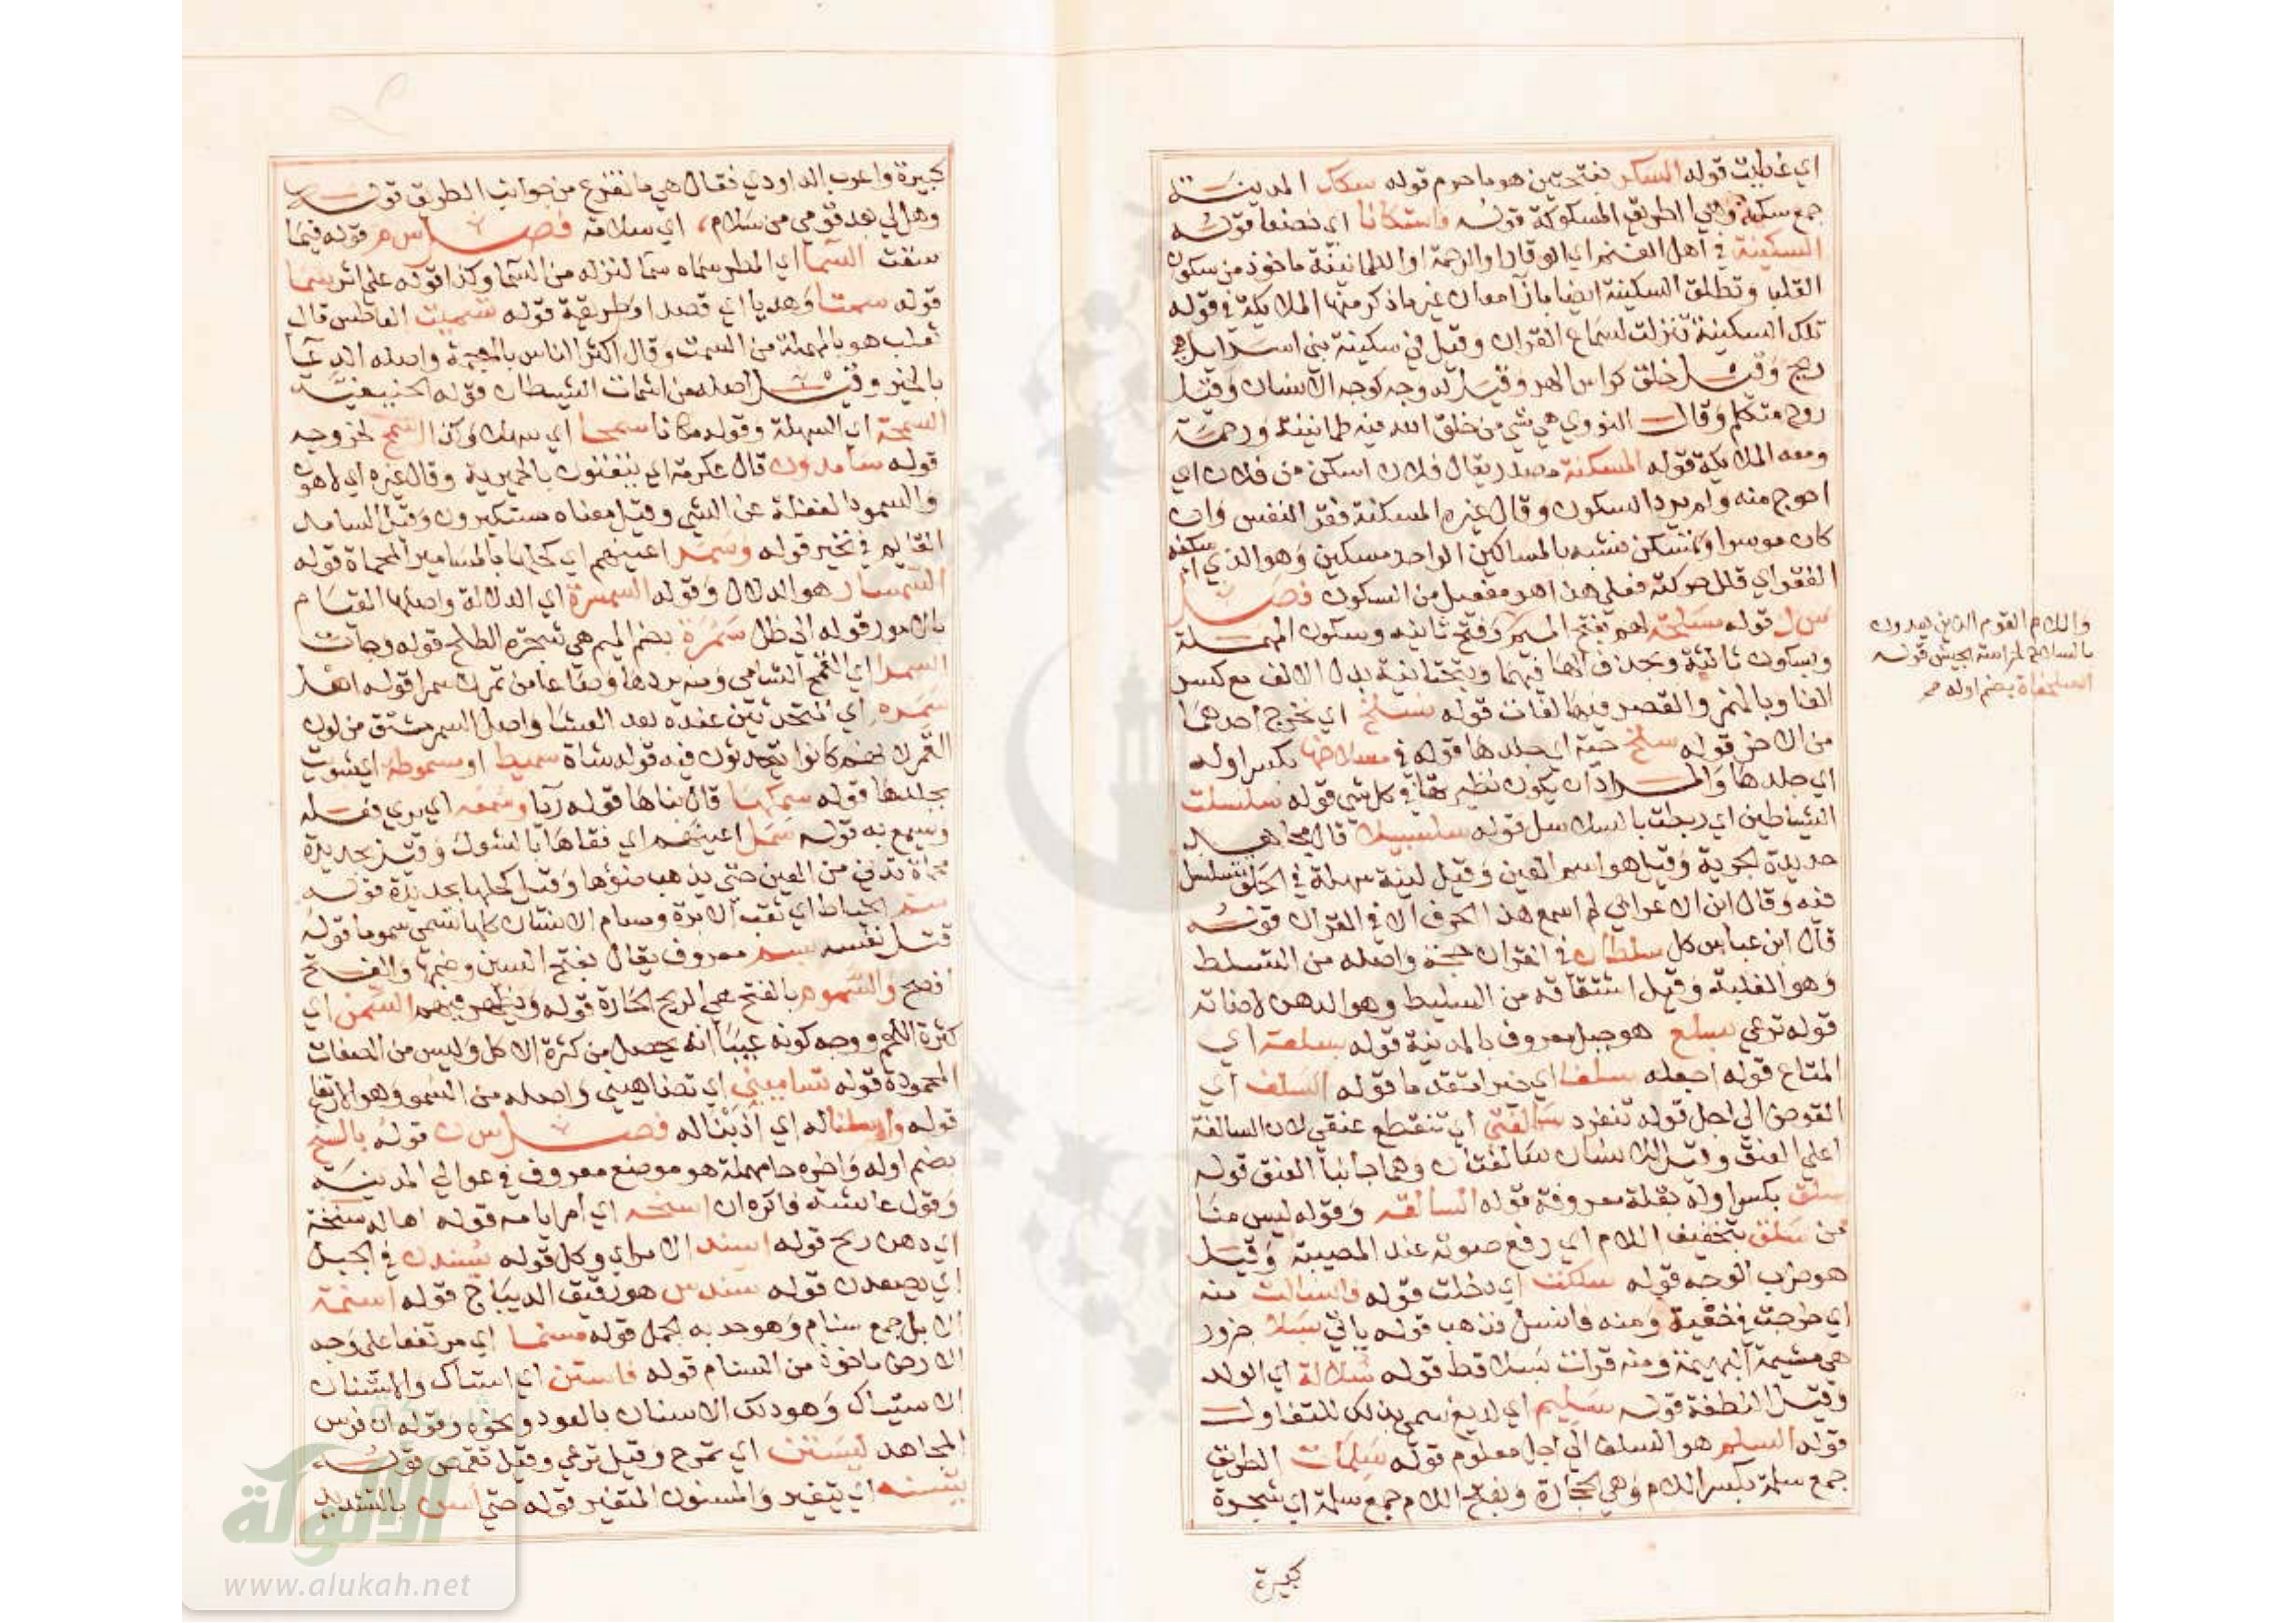 اي غطيت قوله السكر بفتحتين هو ما حرم قوله سكك المدينة
جمع سكة وهي الطريق المسكوكة قوله فاستكانا اي خضعا قوله
السكينة في اهل الغنم اي الوقار او الرحمة او الطمانينة ماخوذ من سكون
القلب وتطلق السكينة ايضا بازا معان غير ما ذكر منها الملايكة في قوله
تلك السكينة تنزلت لسماع القران وقيل في سكينة بني اسرايل هي
ريح وقيل خلق كراس الهر وقيل له وجه كوجه الانسان وقيل
روح متكلم وقال النووي هي شي من خلق الله فيه طمانينة ورحمة
ومعه الملايكة قوله المسكنة مصدر يقال فلان اسكن من فلان اي
احوج منه ولم يرد السكون وقال غيره المسكنة فقر النفس وان
كان موسرا وتمسكن تشبه بالمساكين الواحد مسكين وهو الذي اسكنه
الفقر اي قلل حركته فعلى هذا هو مفعيل من السكون فصل
س ل قوله مسالحة لهم بفتح الميم وفتح ثانيه وسكون المهملة
وبسكون ثانية وبحذف الها فيهما وبتحتانية بدل الالف مع كسر
الفا وبالهمز والقصر فيها لغات قوله نسلخ اي نخرج احدهما
من الاخر قوله سلخ حية اي جلدها قوله في مسلاخها بكسر اوله
اي جلدها والمراد ان يكون نظيرتها في كل شي قوله سلسلت
الشياطين اي ربطت بالسلاسل قوله سلسبيلا قال مجاهد
حديدة الجرية وقيل هو اسم العين وقيل لينة سهلة في الحلق تتسلسل
فيه وقال ابن الاعرابي لم اسمع هذا الحرف الا في القران قوله
قال ابن عباس كل سلطان في القران حجة واصله من التسلط
وهو الغلبة وقيل اشتقاقه من السليط وهو الدهن لاضاته
قوله ترعى بسلع هو جبل معروف بالمدينة قوله سلعة اي
المتاع قوله اجعله سلفا اي خيرا متقدما قوله السلف اي
القرض الى اجل قوله تنفرد سالفتي اي تنقطع عنقي لان السالفة
اعلى العنق وقيل للانسان سالفتان وهما جانبا العنق قوله
سلق بكسر اوله بقلة معروفة قوله السالقه وقوله ليس منا
من سلق بتخفيف اللام اي رفع صوته عند المصيبة وقيل
هو ضرب الوجه قوله سلكت اي دخلت قوله فانسللت منه
اي خرجت في خفية ومنه فانسل فذهب قوله ياتي بسلا جزور
هي مشيمة البهيمة ومنه قرات بسلا قط قوله سلالة اي الولد
وقيل النطفة قوله سليم اي لديغ سمي بذلك للتفاول
قوله السلم هو السلف الى اجل معلوم قوله سلمات الطريق
جمع سلمة بكسر اللام وهي الحجارة وبفتح اللام جمع سلمة اي شجرة
كبيرة
واللام القوم الذين يعدون
بالسلاح لحراسة الجيش قوله
السلحفاة بضم اوله صح
كبيرة واغرب الداودي فقال هي ما تفرع من جوانب الطريق قوله
وهل لي بعد قومي من سلام، اي سلامة فصل س م قوله فيما
سقت السما اي المطر سماه سما لنزوله من السما وكذا قوله على اثر سما
قوله سمتا وهديا اي قصدا وطريقة قوله تسميت العاطس قال
ثعلب هو بالمهملة من السمت وقال اكثر الناس بالمعجمة واصله الدعا
بالخير وقيل اصله من اشمات الشيطان قوله الحنيفية
السمحة اي السهلة وقوله مكانا سمحا اي سهلا وكان اسمح لخروجه
قوله سامدون قال عكرمة اي يتغنون بالحميرية وقال غيره اي لاهون
والسمود الغفلة عن الشي وقيل معناه مستكبرون وقيل السامد
القايم في تحير قوله وسمر اعينهم اي كحلها بالمسامير المحماة قوله
السمسار هو الدلال وقوله السمسرة اي الدلالة واصلها القيام
بالامور قوله الى ظل سمرة بضم الميم هي شجرة الطلح قوله وجات
السمرا اي القمح الشامي ومنه بردها وصاعا من تمر لا سمرا قوله اهل
سمره اي المتحدثين عنده بعد العشا واصل السمر مشتق من لون
القمر لانهم كانوا يتحدثون فيه قوله شاة سميط او مسموطة اي شويت
بجلدها قوله سمكها قال بناها قوله ريا وسمعه اي يرى فعله
ويسمع به قوله سمل اعينهم اي فقاها بالشوك وقيل بحديدة
محماة تدني من العين حتى يذهب ضوها وقيل كحلها بحديدة قوله
سم الخياط اي ثقب الابرة ومسام الانسان كلها تسمى سموما قوله
قتل نفسه بسم معروف يقال بفتح السين وضمها والفتح
افصح والسموم بالفتح هي الريح الحارة قوله ويظهر فيهم السمن اي
كثرة اللحم ووجه كونه عيبا انه يحصل من كثرة الاكل وليس من الصفات
المحمودة قوله تساميني اي تضاهيني واصله من السمو وهو الارتفاع
قوله واسلنا له اي اذبنا له فصل س ن قوله بالسنح
بضم اوله واخره حا مهملة هو موضع معروف في عوالي المدينة
وقول عايشة فاكره ان اسنحه اي امر امامه قوله اهالة سنخة
اي دهن ريح قوله اسند الامر اي وكل قوله يسندن في الجبل
اي يصعدن قوله سندس هو رقيق الديباج قوله اسنمة
الابل جمع سنام وهو حدبة الجمل قوله مسنما اي مرتفعا على وجه
الارض ماخوذ من السنام قوله فاستن اي استاك والاستنان
الاستياك وهو دلك الاسنان بالعود ونحوه وقوله ان فرس
المجاهد ليستن اي تمرح وقيل ترعى وقيل تقمص قوله
يتسنه اي يتغير والمسنون المتغير قوله حتى اسن بالتشديد
شبكة
الألوكة
www.alukah.net